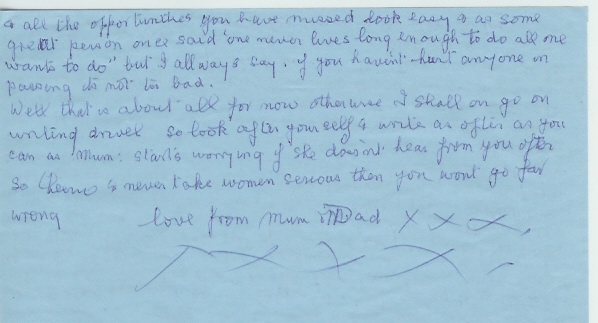 & all the opportunities you have missed look easy & as some
great person once said "one never lives long enough to do all one
wants to do" but I allways say. if you havin't hurt anyone in
passing its not to bad.
Well that is about all for now otherwise I shall on go on
writing drivel so look after yourself & write as often as you
can as Mum: starts worrying if she dosin't hear from you often
so & never take women serious then you wont go far
wrong love from Mum & Dad x x x,
x x x x